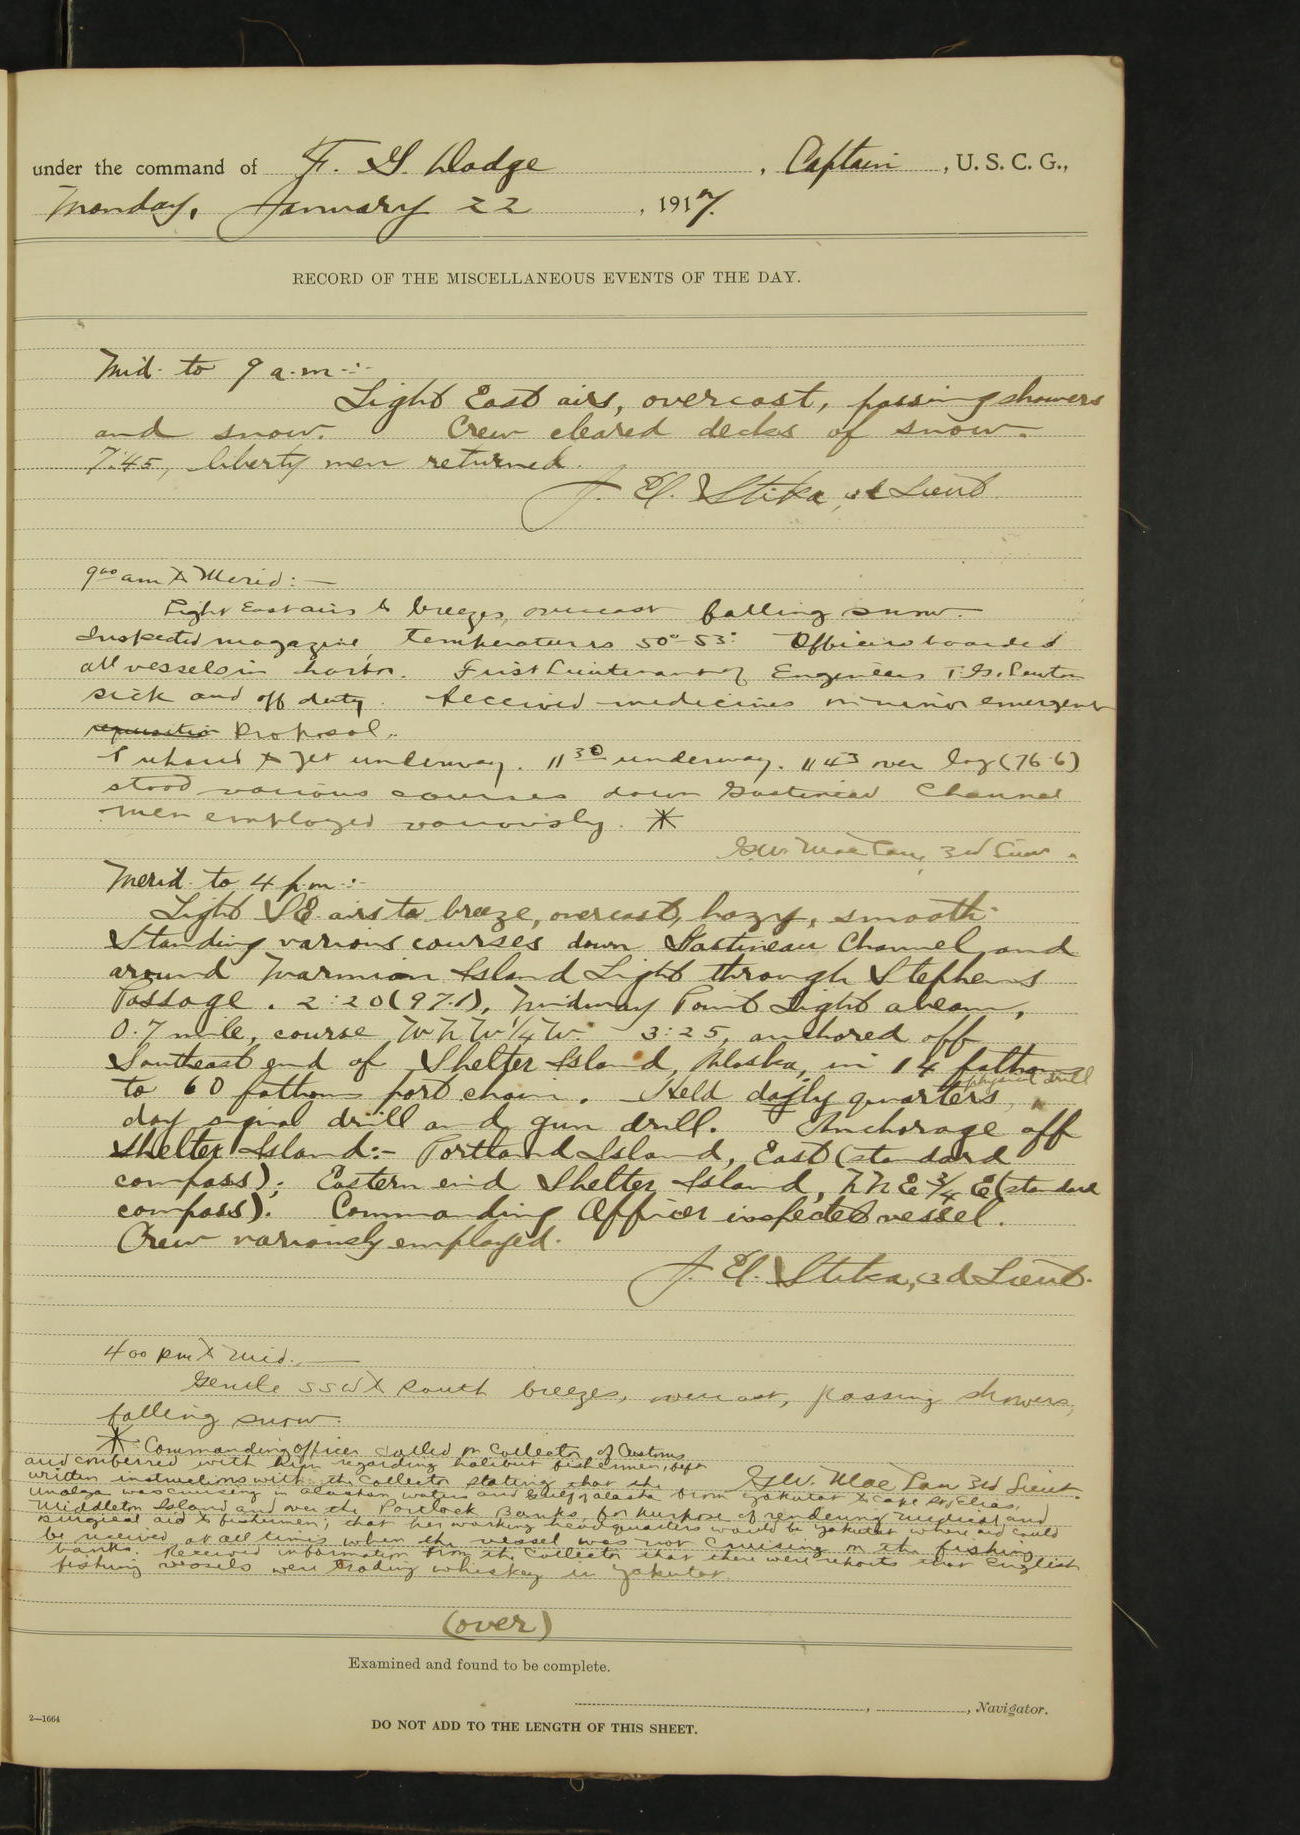 under the command of F. G. Dodge, Captain, U. S. C. G.,
Monday, January 22, 1917.
RECORD OF THE MISCELLANEOUS EVENTS OF THE DAY.
Mid. to 9 a.m.:-
Light East airs, overcast, passing showers
and snow. Crew cleared decks of snow.
7:45, liberty men returned.
J. E. Stika, 3d Lieut.
9 00 am to Merid:—
Light East airs to breezes, overcast falling snow.
Inspected magazine, temperatures 50°-53°. Officers boarded
all vessels in harbor. First Lieutenant of Engineers
sick and off duty. Received medicines on minor emergent
requisition Proposal.
to get underway. 11 30 underway. 11 43 over log (76.6)
stood various courses down Gastineau Channel
men employed variously. *
G.W. MacLane, 3rd Lieut.
Merid. to 4 p.m.:-
Light SE airs to breeze, overcast, hazy, smooth.
Standing various courses down Gastineau Channel and
around Marmion Island Light through Stephens
Passage. 2:20 (97.1), Midway Point Light abeam,
0.7 mile, course WNW 1/4 W. 3:25, anchored off
Southeast end of Shelter Island, Alaska, in 14 fathoms
to 60 fathoms port chain. Held daily quarters, physical drill
day signal drill and gun drill. Anchorage off
Shelter Island:- Portland Island, East (standard
compass); Eastern end Shelter Island, NNE 3/4 E (standard
compass). Commanding Officer inspected vessel.
Crew variously employed.
J. E. Stika, 3d Lieut.
4 00 pm to Mid.—
Gentle SSW to South breezes, overcast, passing showers,
falling snow.
* Commanding officer called on Collector of Customs
and conferred with him regarding halibut fishermen, left
written instructions with the Collector stating that the
G.W. MacLane 3rd Lieut.
Unalga was cruising in Alaskan waters and Gulf of Alaska from Yakutat to Cape St. Elias,
Middleton Island and over the Portlock Banks, for purpose of rendering medical and
surgical aid to fishermen; that her working headquarters would be Yakutat where aid could
be received at all times when the vessel was not cruising on the fishing
banks. Received information from the Collector that there were reports that English
fishing vessels were trading whiskey in Yakutat.
(over)
Examined and found to be complete.
, , Navigator.
2—1664
DO NOT ADD TO THE LENGTH OF THIS SHEET.